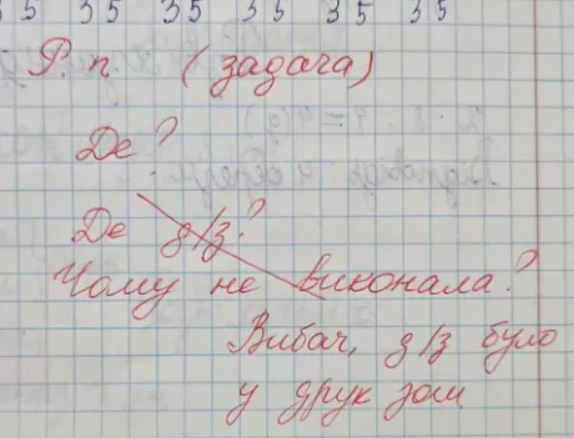 35 35 35 35 35 35
Р. п. (задача)
Де?
Де д/з?
Чому не виконала?
Вибач, д/з було
у друк зош.